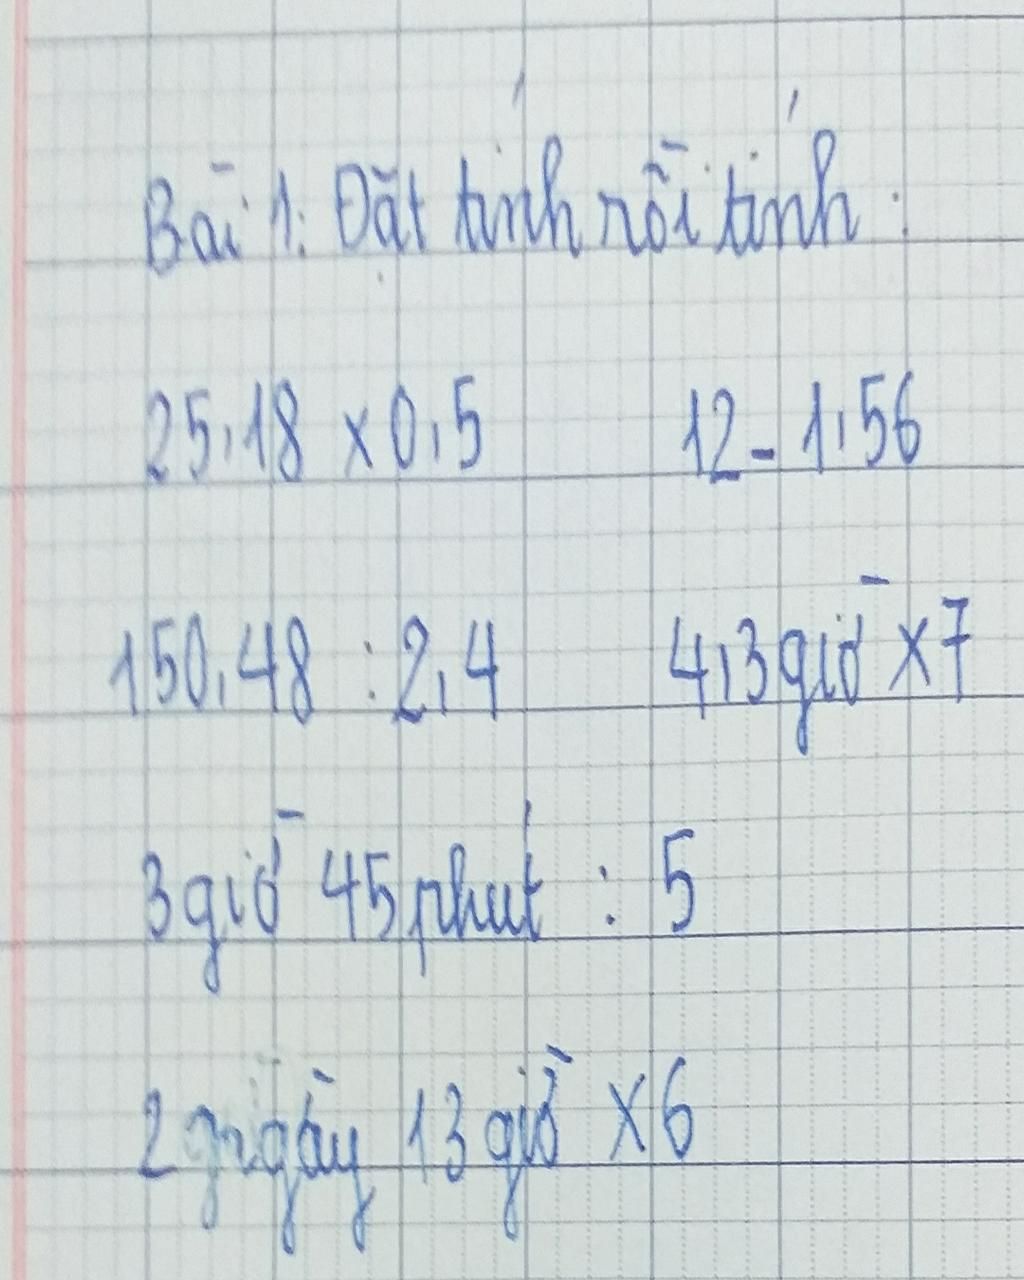 Bài 1: Đặt tính rồi tính:
25,18 x 0,5 12 - 1,56
150,48 : 2,4 4,3 giờ x 7
3 giờ 45 phút : 5
2 ngày 13 giờ x 6